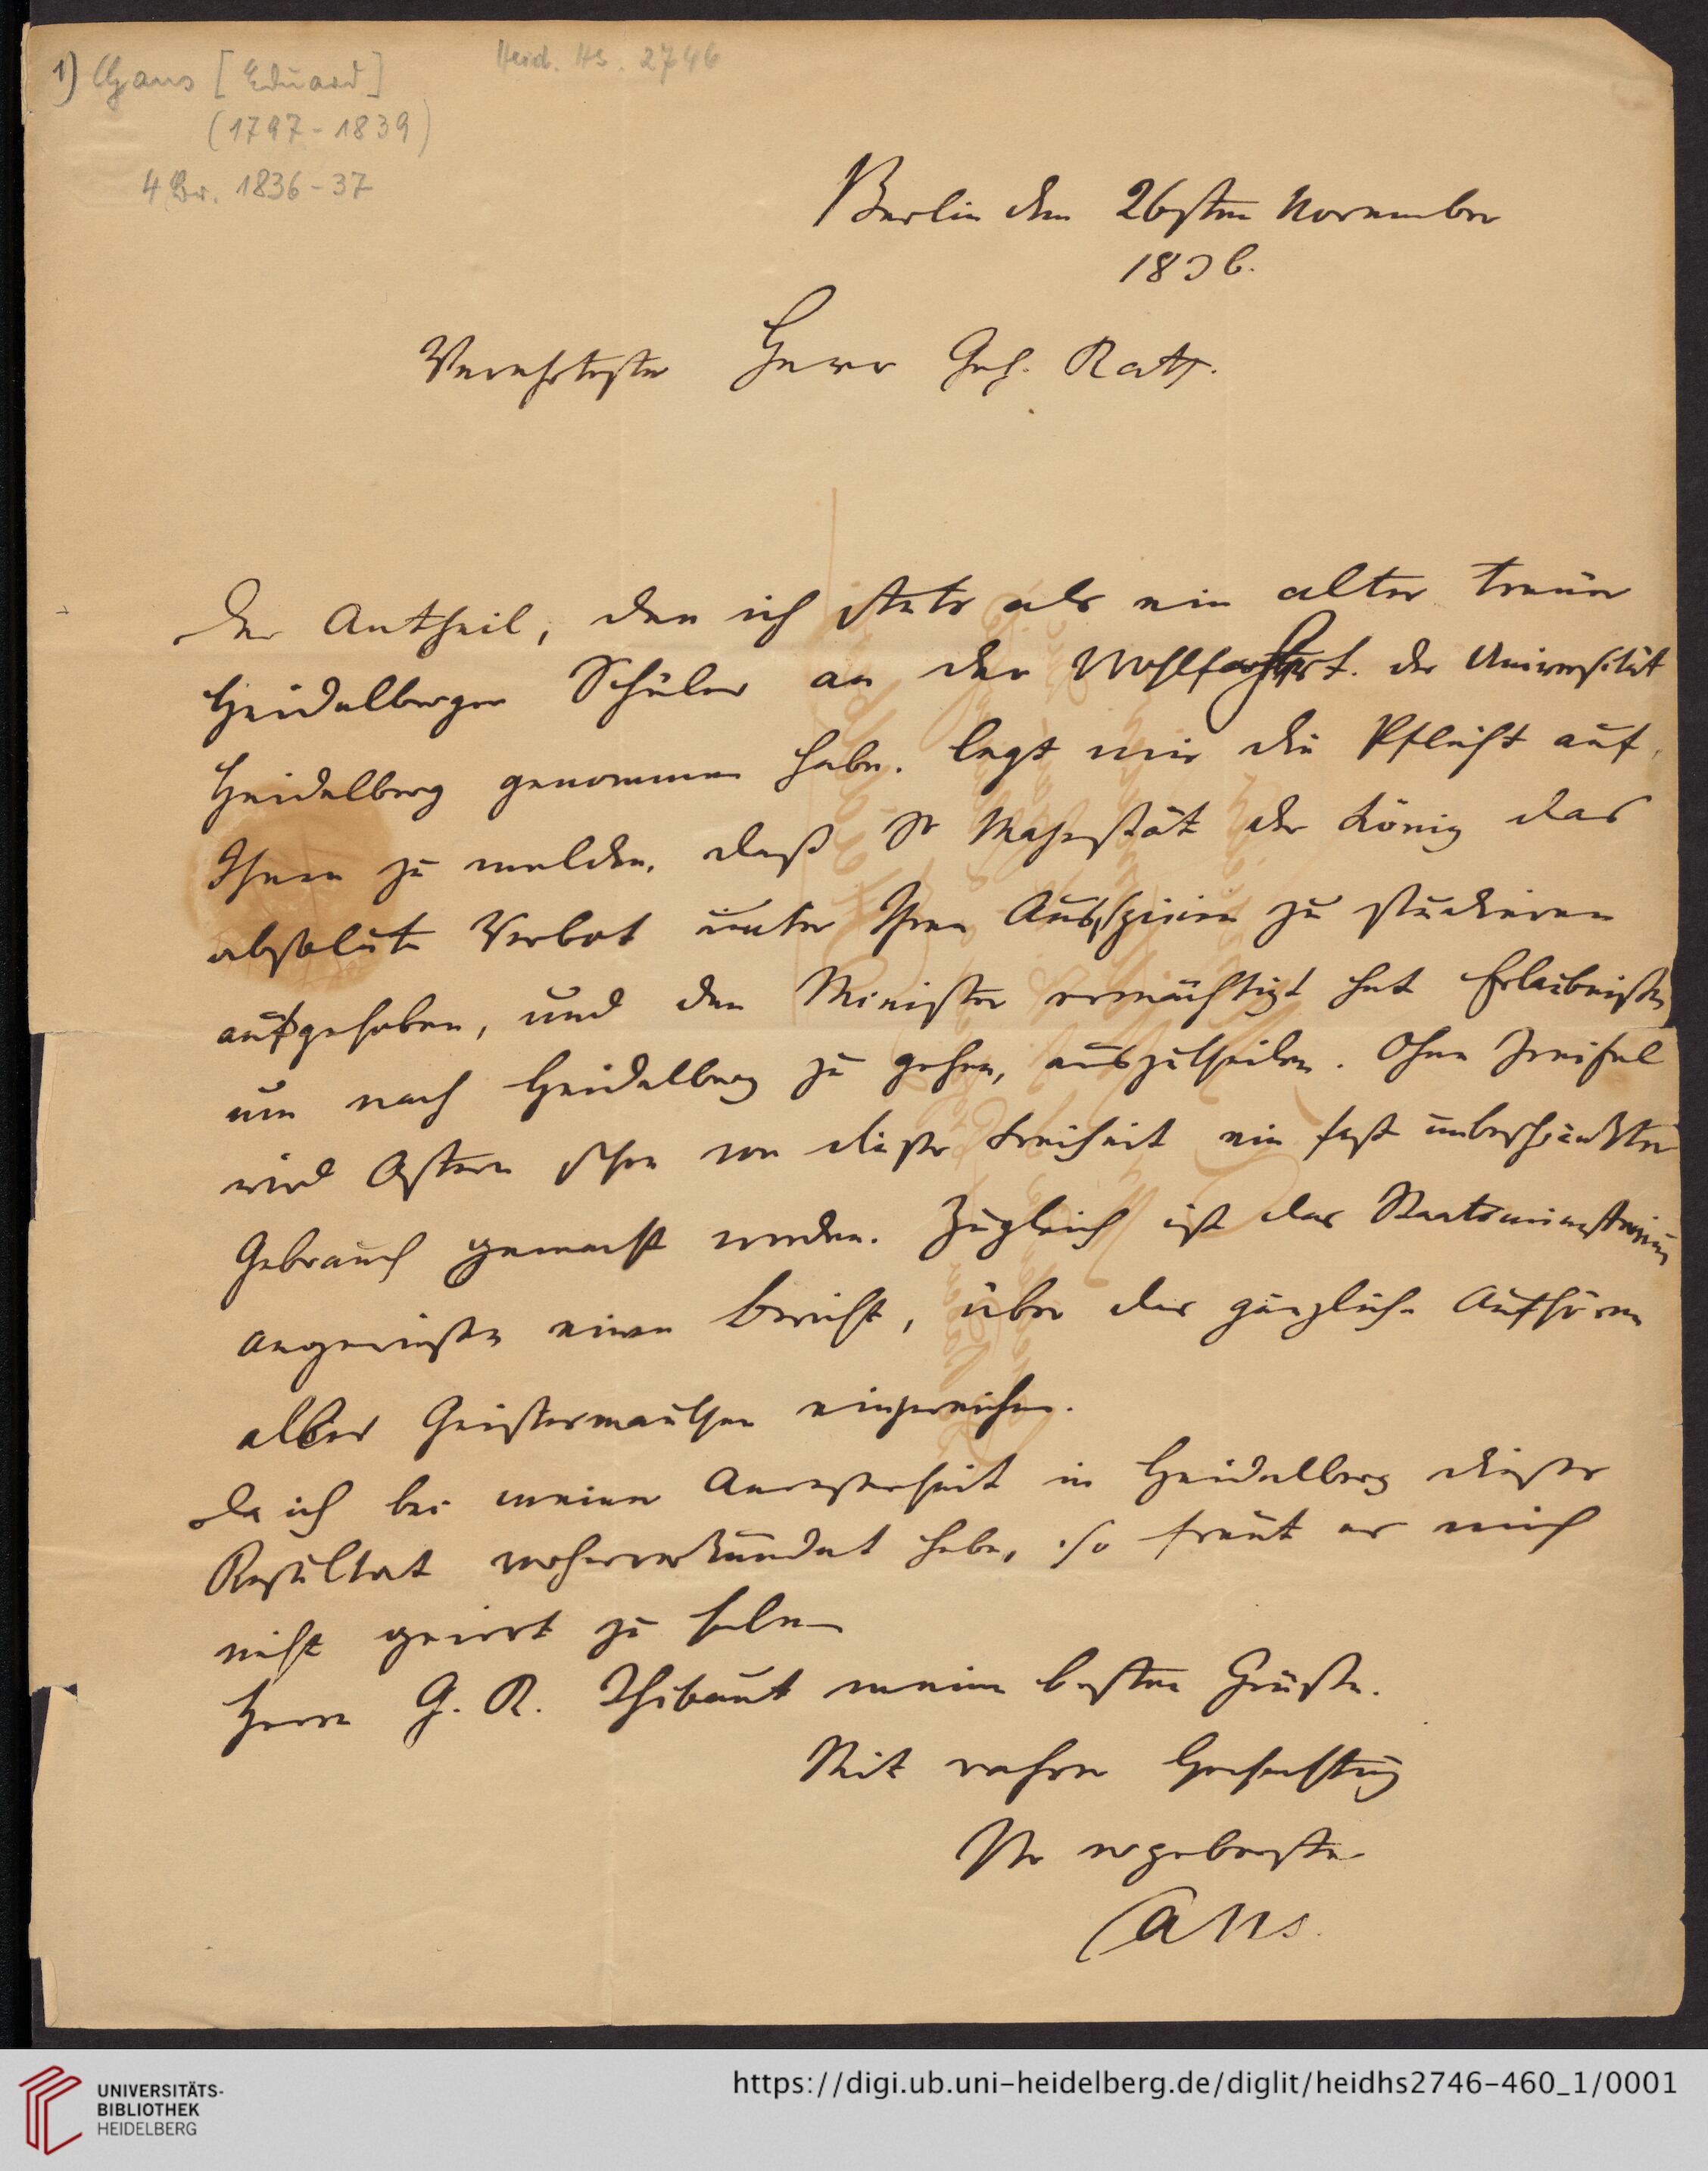 1) Gans [Eduard]
Heid. Hs. 2746
(1797-1839)
4 Br. 1836-37
Berlin den 26sten November
1836.
Verehrtester Herr Geh. Rath.
Der Antheil, den ich stets als ein alter treuer
Heidelberger Schüler an der Wohlfahrt der Universität
Heidelberg genommen habe, legt mir die Pflicht auf,
Ihnen zu melden, daß Sr Majestät der König das
absolute Verbot unter Ihren Auspicien zu studieren
aufgehoben, und den Minister ermächtigt hat Erlaubniße
um nach Heidelberg zu gehen, auszutheilen. Ohne Zweifel
wird Ostern schon von dieser Freiheit ein fast unbeschränkter
Gebrauch gemacht werden. Zugleich ist das Staatsministerium
angewiesen einen Bericht, über das gänzliche Aufhören
aller Geistermauthen einzureichen.
Da ich bei meiner Anwesenheit in Heidelberg dieses
Resultat vorherverkündet habe, so freut es mich
nicht geirrt zu haben
Herrn G. R. Thibaut meine besten Grüße.
Mit wahrer Hochachtung
Ihr ergebenster
Gans.
UNIVERSITÄTS-
BIBLIOTHEK
HEIDELBERG
https://digi.ub.uni-heidelberg.de/diglit/heidhs2746-460_1/0001